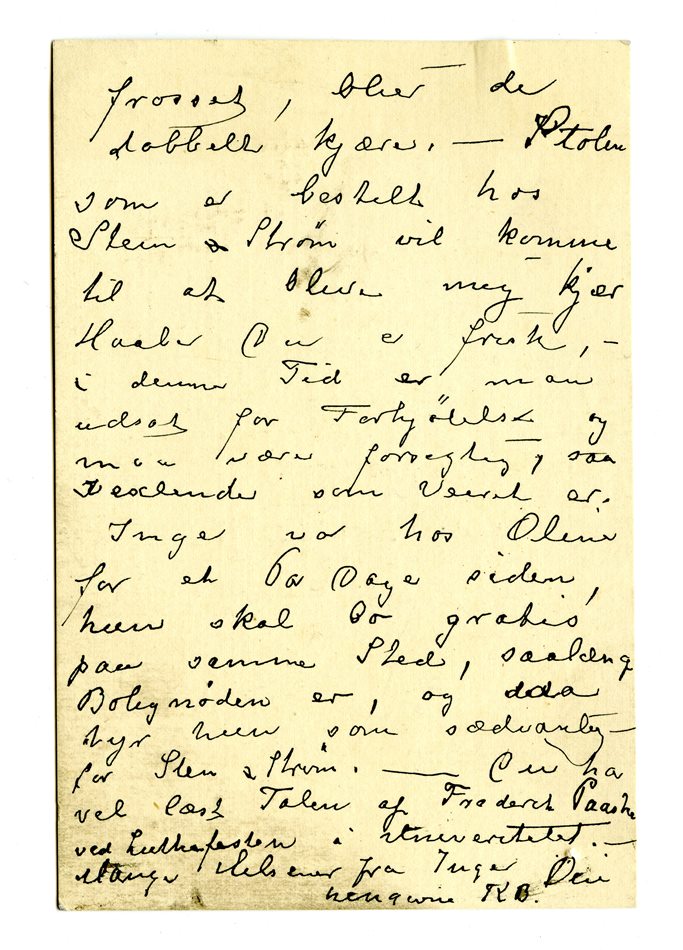 frosset, blier de
dobbelt kjære. — Kjolen
som er bestelt hos
Steen & Strøm vil komme
til at blive meg kjær
Haaber Du er frisk, –
i denne Tid er man
udsat for Forkjølelse og
maa være forsegtig, saa
vexlende som Veeret er.
Inge var hos Oline
for et Par Dage siden,
hun skal bo gratis
paa samme Sted, saalæng
Bolignøden er, og
syr hun som sædvanlig
for Sten & Strøm. — Du ha
vel læst Talen af Frederik Paasche
ved Lutherfesten i Universitetet. —
Mange Hilsener fra Inger Din
hengivne KB.